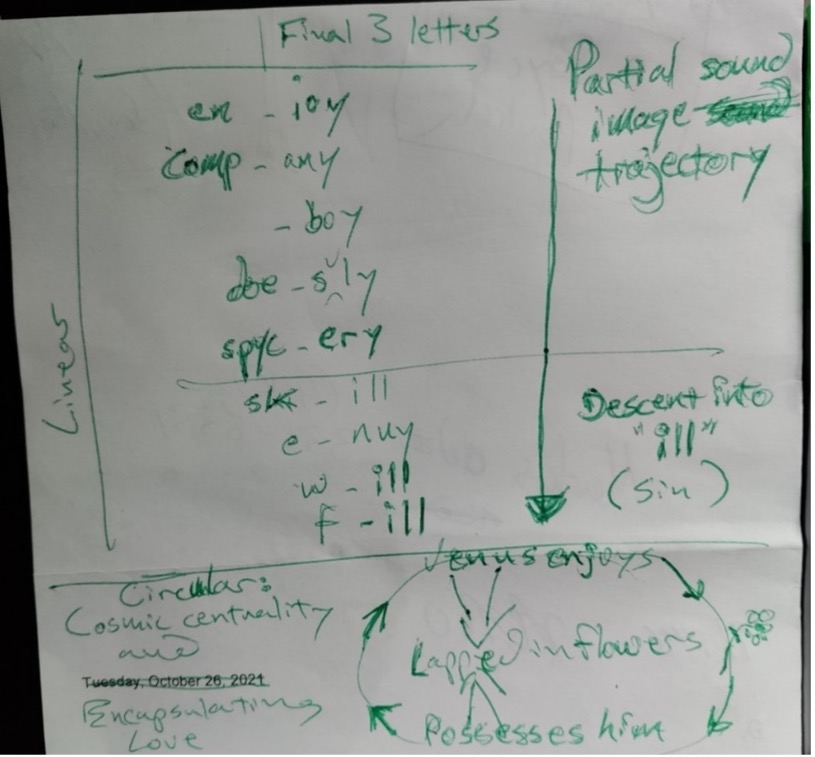 Final 3 letters
Partial sound
image
trajectory
en - ioy
Comp - any
- boy
doe - sly
spyc - ery
Linear
- ill
e - nuy
w - ill
f - ill
Descent into
"ill"
(sin)
Venus enjoys
Lapped in flowers
Possesses him
Circular:
Cosmic centrality
and
Tuesday, October 26, 2021
Encapsulating
Love